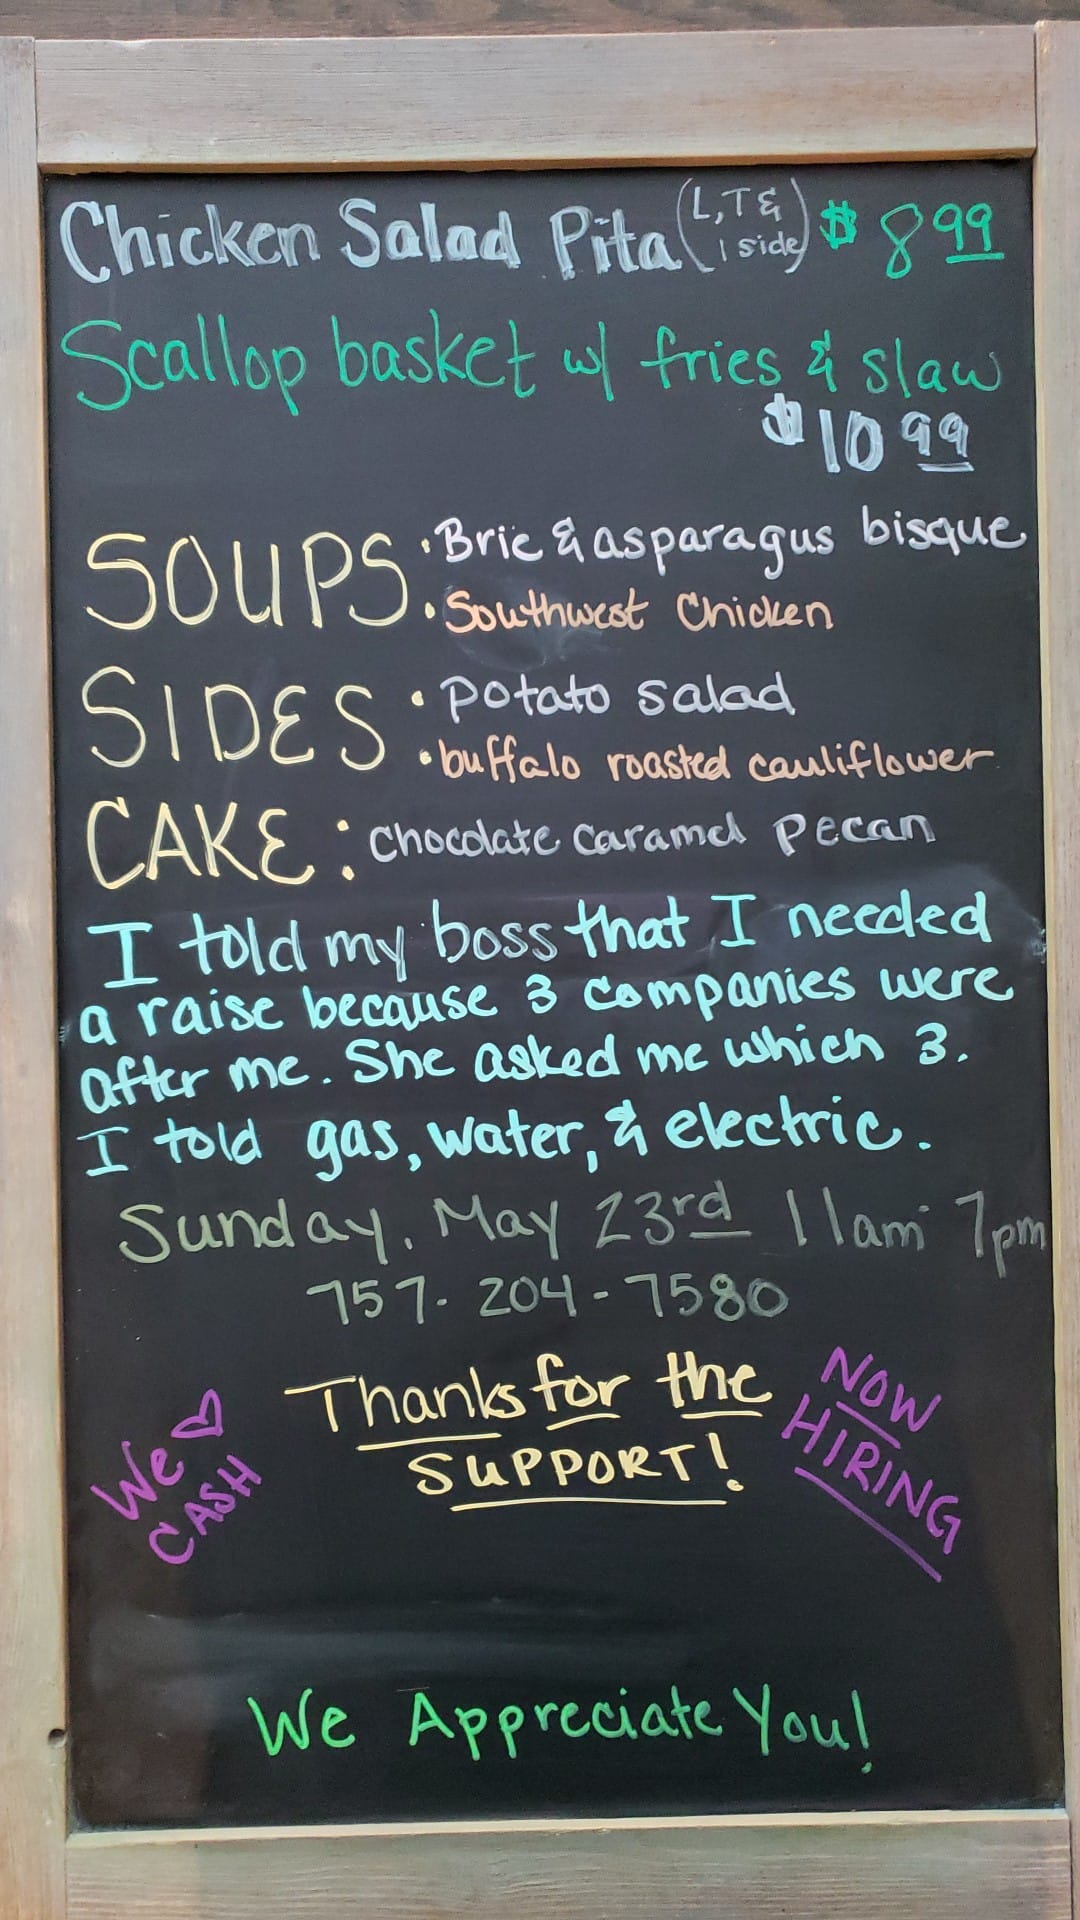 Chicken Salad Pita (L, T & 1 side) $8.99
Scallop basket w/ fries & slaw
$10.99
SOUPS: • Brie & asparagus bisque
• Southwest Chicken
SIDES: • potato salad
• buffalo roasted cauliflower
CAKE: Chocolate Caramel Pecan
I told my boss that I needed
a raise because 3 companies were
after me. She asked me which 3.
I told gas, water, & electric.
Sunday, May 23rd 11am- 7pm
757-204-7580
Thanks for the
SUPPORT!
We ♡
CASH
NOW
HIRING
We Appreciate You!